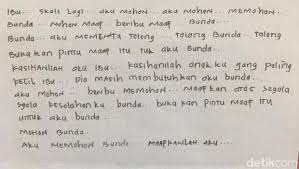 IBU... SKALI LAGI... AKU MOHON... AKU MOHON... MEMOHON...
BUNDA... MOHON MAAF BERIBU MAAF BUNDA...
BUNDA... AKU MEMINTA TOLONG... TOLONG BUNDA... TOLONG
BUKAKAN PINTU MAAF ITU TUK AKU BUNDA...
KASIHANILAH AKU IBU... KASIHANILAH ANAK KU YANG PALING
KECIL IBU... DIA MASIH MEMBUTUHKAN AKU BUNDA...
AKU MOHON... BERIBU MEMOHON... MAAFKAN ATAS SEGALA
SEGALA KESALAHAN KU BUNDA... BUKAKAN PINTU MAAF ITU
UNTUK AKU BUNDA...
MOHON BUNDA...
AKU MEMOHON BUNDA... MAAFKANLAH AKU...
detikcom